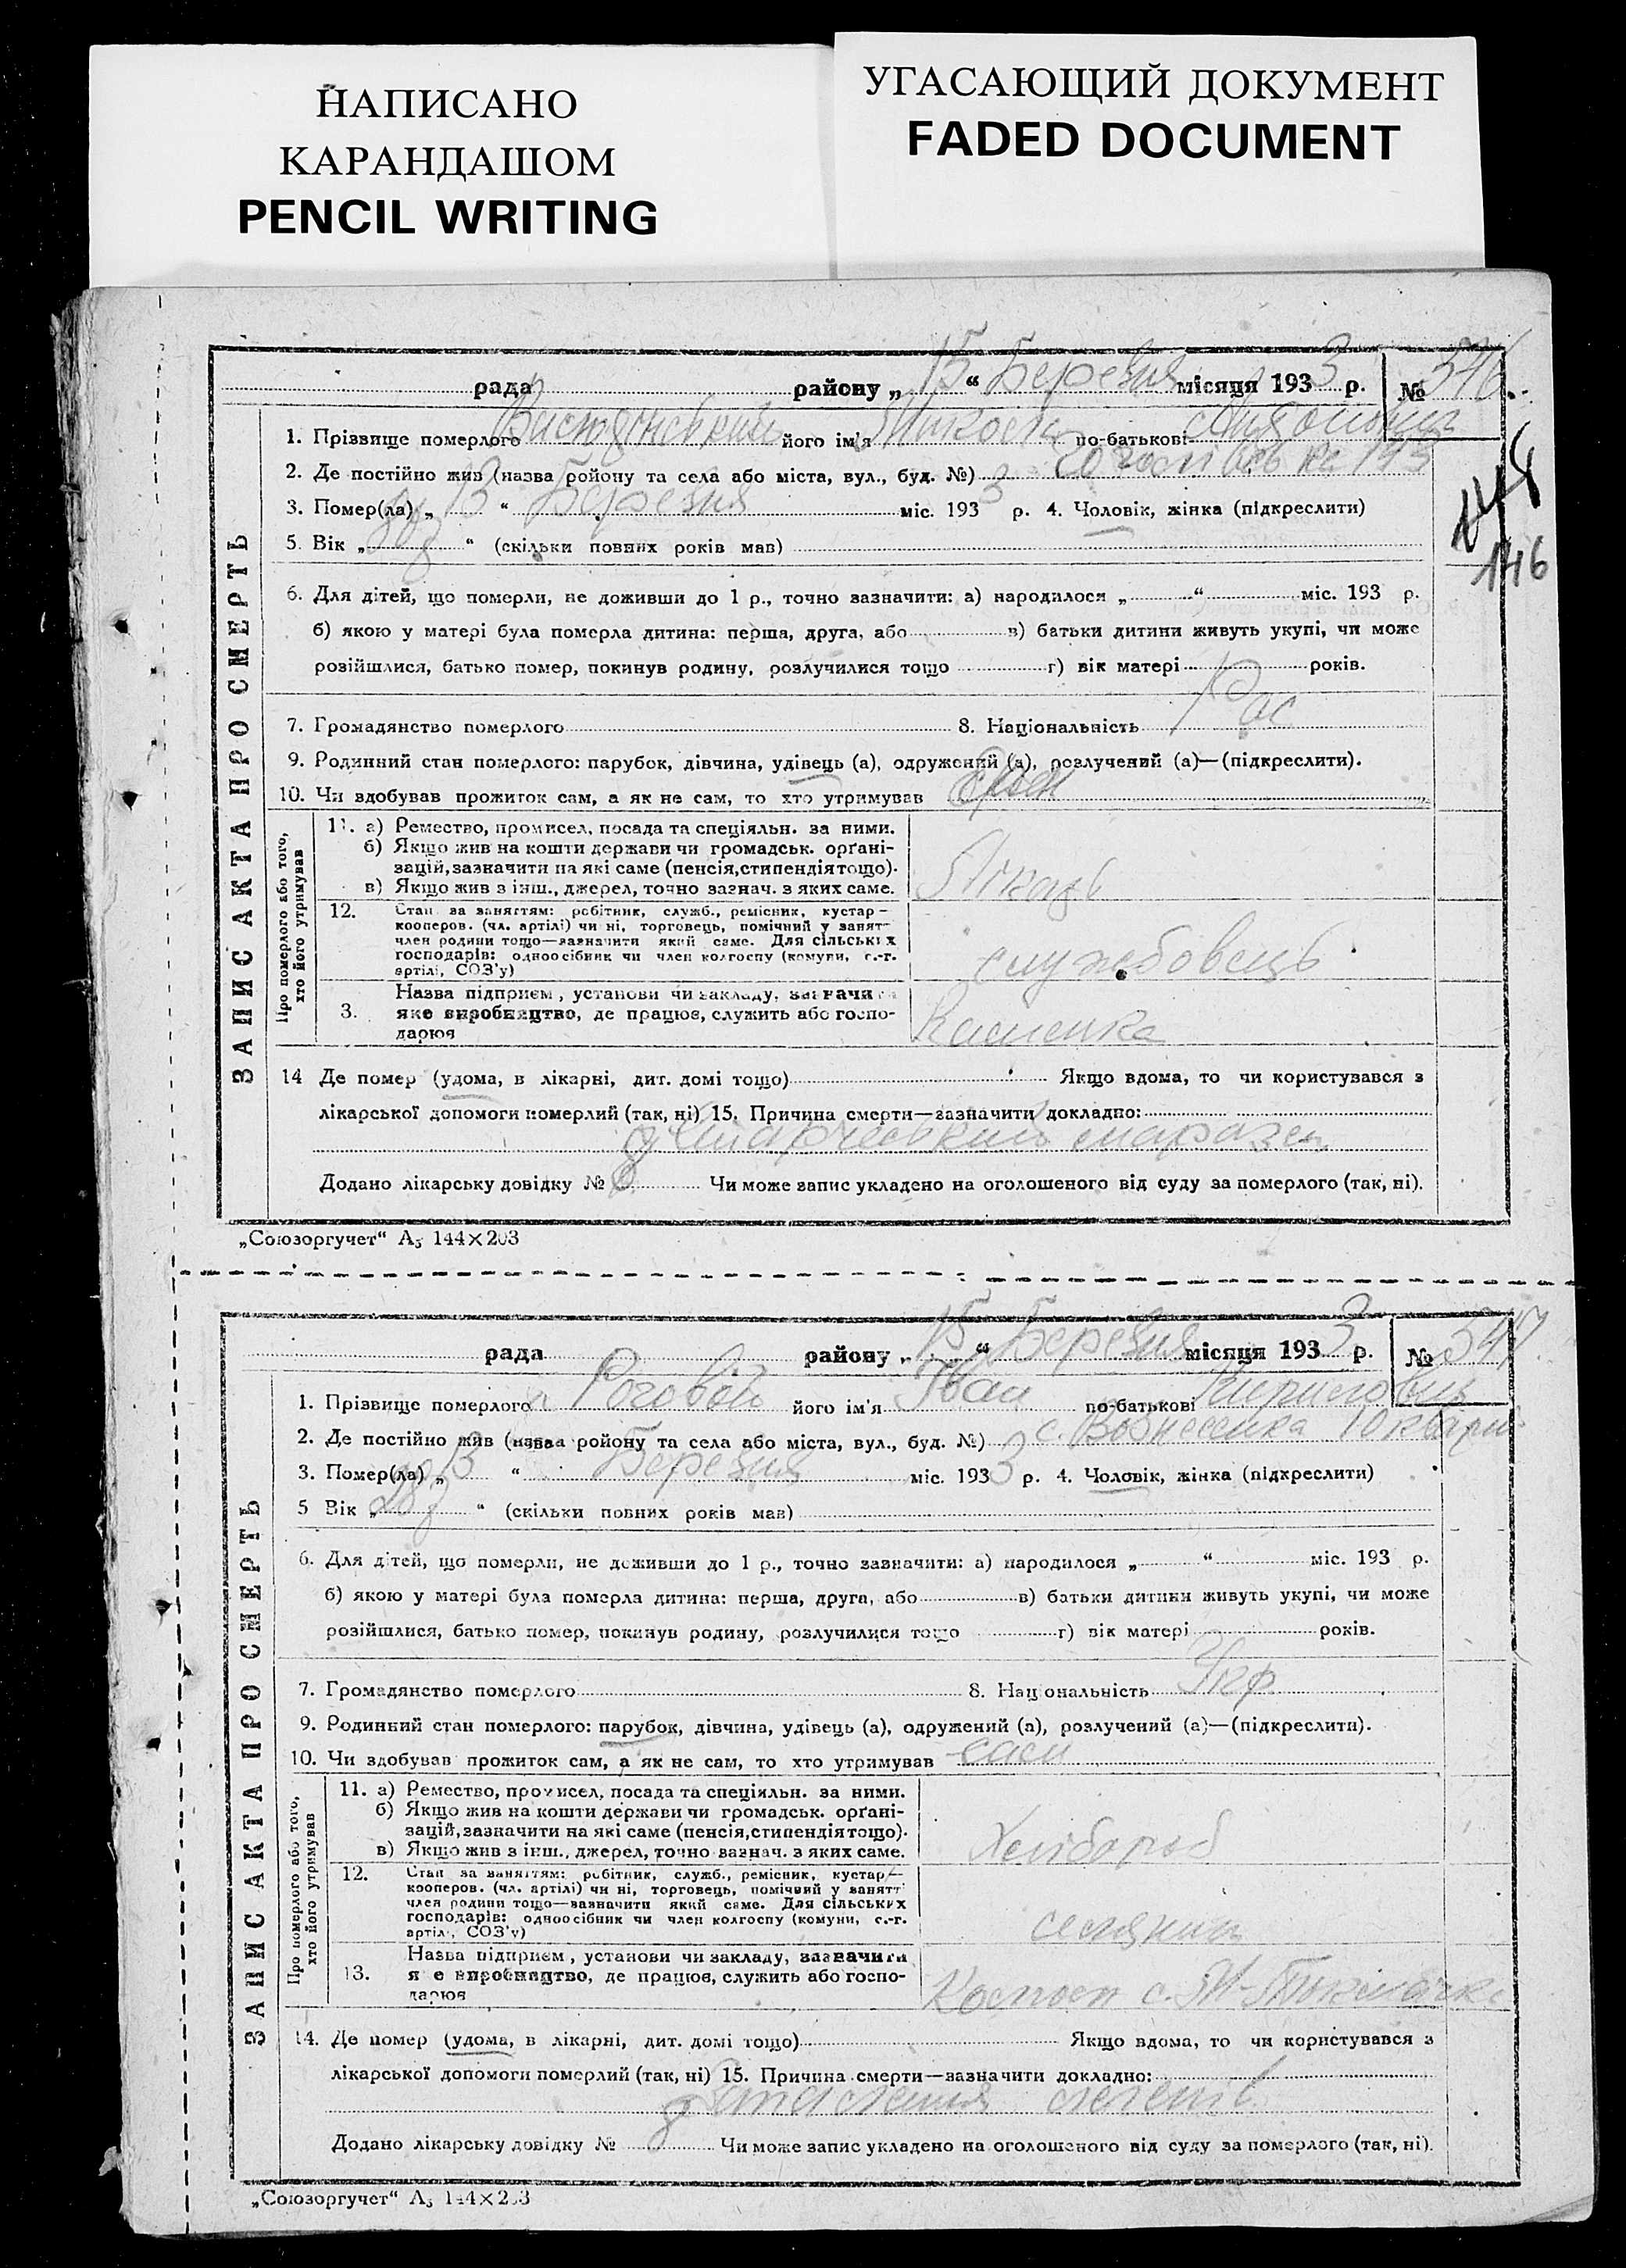 НАПИСАНО
КАРАНДАШОМ
PENCIL WRITING
УГАСАЮЩИЙ ДОКУМЕНТ
FADED DOCUMENT
рада району „ 15 “ Березня місяця 1933 р. № 346
1. Прізвище померлого його ім'я Микола по-батькові
2. Де постійно жив (назва ройону та села або міста, вул., буд. №)
3. Помер(ла) „ 13 “ Березня міс. 1933 р. 4. Чоловік, жінка (підкреслити)
5. Вік „ “ (скільки повних років мав)
146
6. Для дітей, що померли, не доживши до 1 р., точно зазначити: а) народилося „ “ міс. 193 р.
б) якою у матері була померла дитина: перша, друга, або в) батьки дитини живуть укупі, чи може
розійшлися, батько помер, покинув родину, розлучилися тощо г) вік матері років.
7. Громадянство померлого 8. Національність Рос
9. Родинний стан померлого: парубок, дівчина, удівець (а), одружений (а), розлучений (а)—(підкреслити).
10. Чи здобував прожиток сам, а як не сам, то хто утримував
ЗАПИС АКТА ПРО СМЕРТЬ
Про померлого або того, хто його утримував
11. а) Ремество, промисел, посада та спеціяльн. за ними.
б) Якщо жив на кошти держави чи громадськ. орґані-
зацій, зазначити на які саме (пенсія, стипендія тощо).
в) Якщо жив з інш., джерел, точно зазнач. з яких саме.
12. Стан за заняттям: робітник, служб., ремісник, кустар-
кооперов. (чл. артілі) чи ні, торговець, помічний у занят-
член родини тощо—зазначити який саме. Для сільських
господарів: одноосібник чи член колгоспу (комуни, с.-г.
артілі, СОЗ'у)
службовець
Назва підприєм, установи чи закладу, зазначити
3. яке виробництво, де працює, служить або госпо-
дарює
14 Де помер (удома, в лікарні, дит. домі тощо) Якщо вдома, то чи користувався з
лікарської допомоги померлий (так, ні) 15. Причина смерти—зазначити докладно:
Додано лікарську довідку № Чи може запис укладено на оголошеного від суду за померлого (так, ні).
„Союзоргучет“ А5 144×203
рада району „ 15 “ Березня місяця 1933 р. № 347
1. Прізвище померлого Роговой його ім'я Іван по-батькові Кирилович
2. Де постійно жив (назва ройону та села або міста, вул., буд. №) с. Вознесенка 10
3. Помер(ла) „ 13 “ Березня міс. 1933 р. 4. Чоловік, жінка (підкреслити)
5 Вік „ “ (скільки повних років мав)
6. Для дітей, що померли, не доживши до 1 р., точно зазначити: а) народилося „ “ міс. 193 р.
б) якою у матері була померла дитина: перша, друга, або в) батьки дитини живуть укупі, чи може
розійшлися, батько помер, покинув родину, розлучилися тощо г) вік матері років.
7. Громадянство померлого 8. Національність Укр
9. Родинний стан померлого: парубок, дівчина, удівець (а), одружений (а), розлучений (а)—(підкреслити).
10. Чи здобував прожиток сам, а як не сам, то хто утримував сам
ЗАПИС АКТА ПРО СМЕРТЬ
Про померлого або того, хто його утримував
11. а) Ремество, промисел, посада та спеціяльн. за ними.
б) Якщо жив на кошти держави чи громадськ. орґані-
зацій, зазначити на які саме (пенсія, стипендія тощо).
в) Якщо жив з інш., джерел, точно зазнач. з яких саме.
Хлібороб
12. Стан за заняттям: робітник, служб., ремісник, кустар-
кооперов. (чл. артілі) чи ні, торговець, помічний у занятт
член родини тощо—зазначити який саме. Для сільських
господарів: одноосібник чи член колгоспу (комуни, с.-г.
артілі, СОЗ'у)
селянин
Назва підприєм, установи чи закладу, зазначити
13. яке виробництво, де працює, служить або госпо-
дарює
14. Де помер (удома, в лікарні, дит. домі тощо) Якщо вдома, то чи користувався з
лікарської допомоги померлий (так, ні) 15. Причина смерти—зазначити докладно:
Запалення легенів
Додано лікарську довідку № Чи може запис укладено на оголошеного від суду за померлого (так, ні).
„Союзоргучет“ А5 144×203